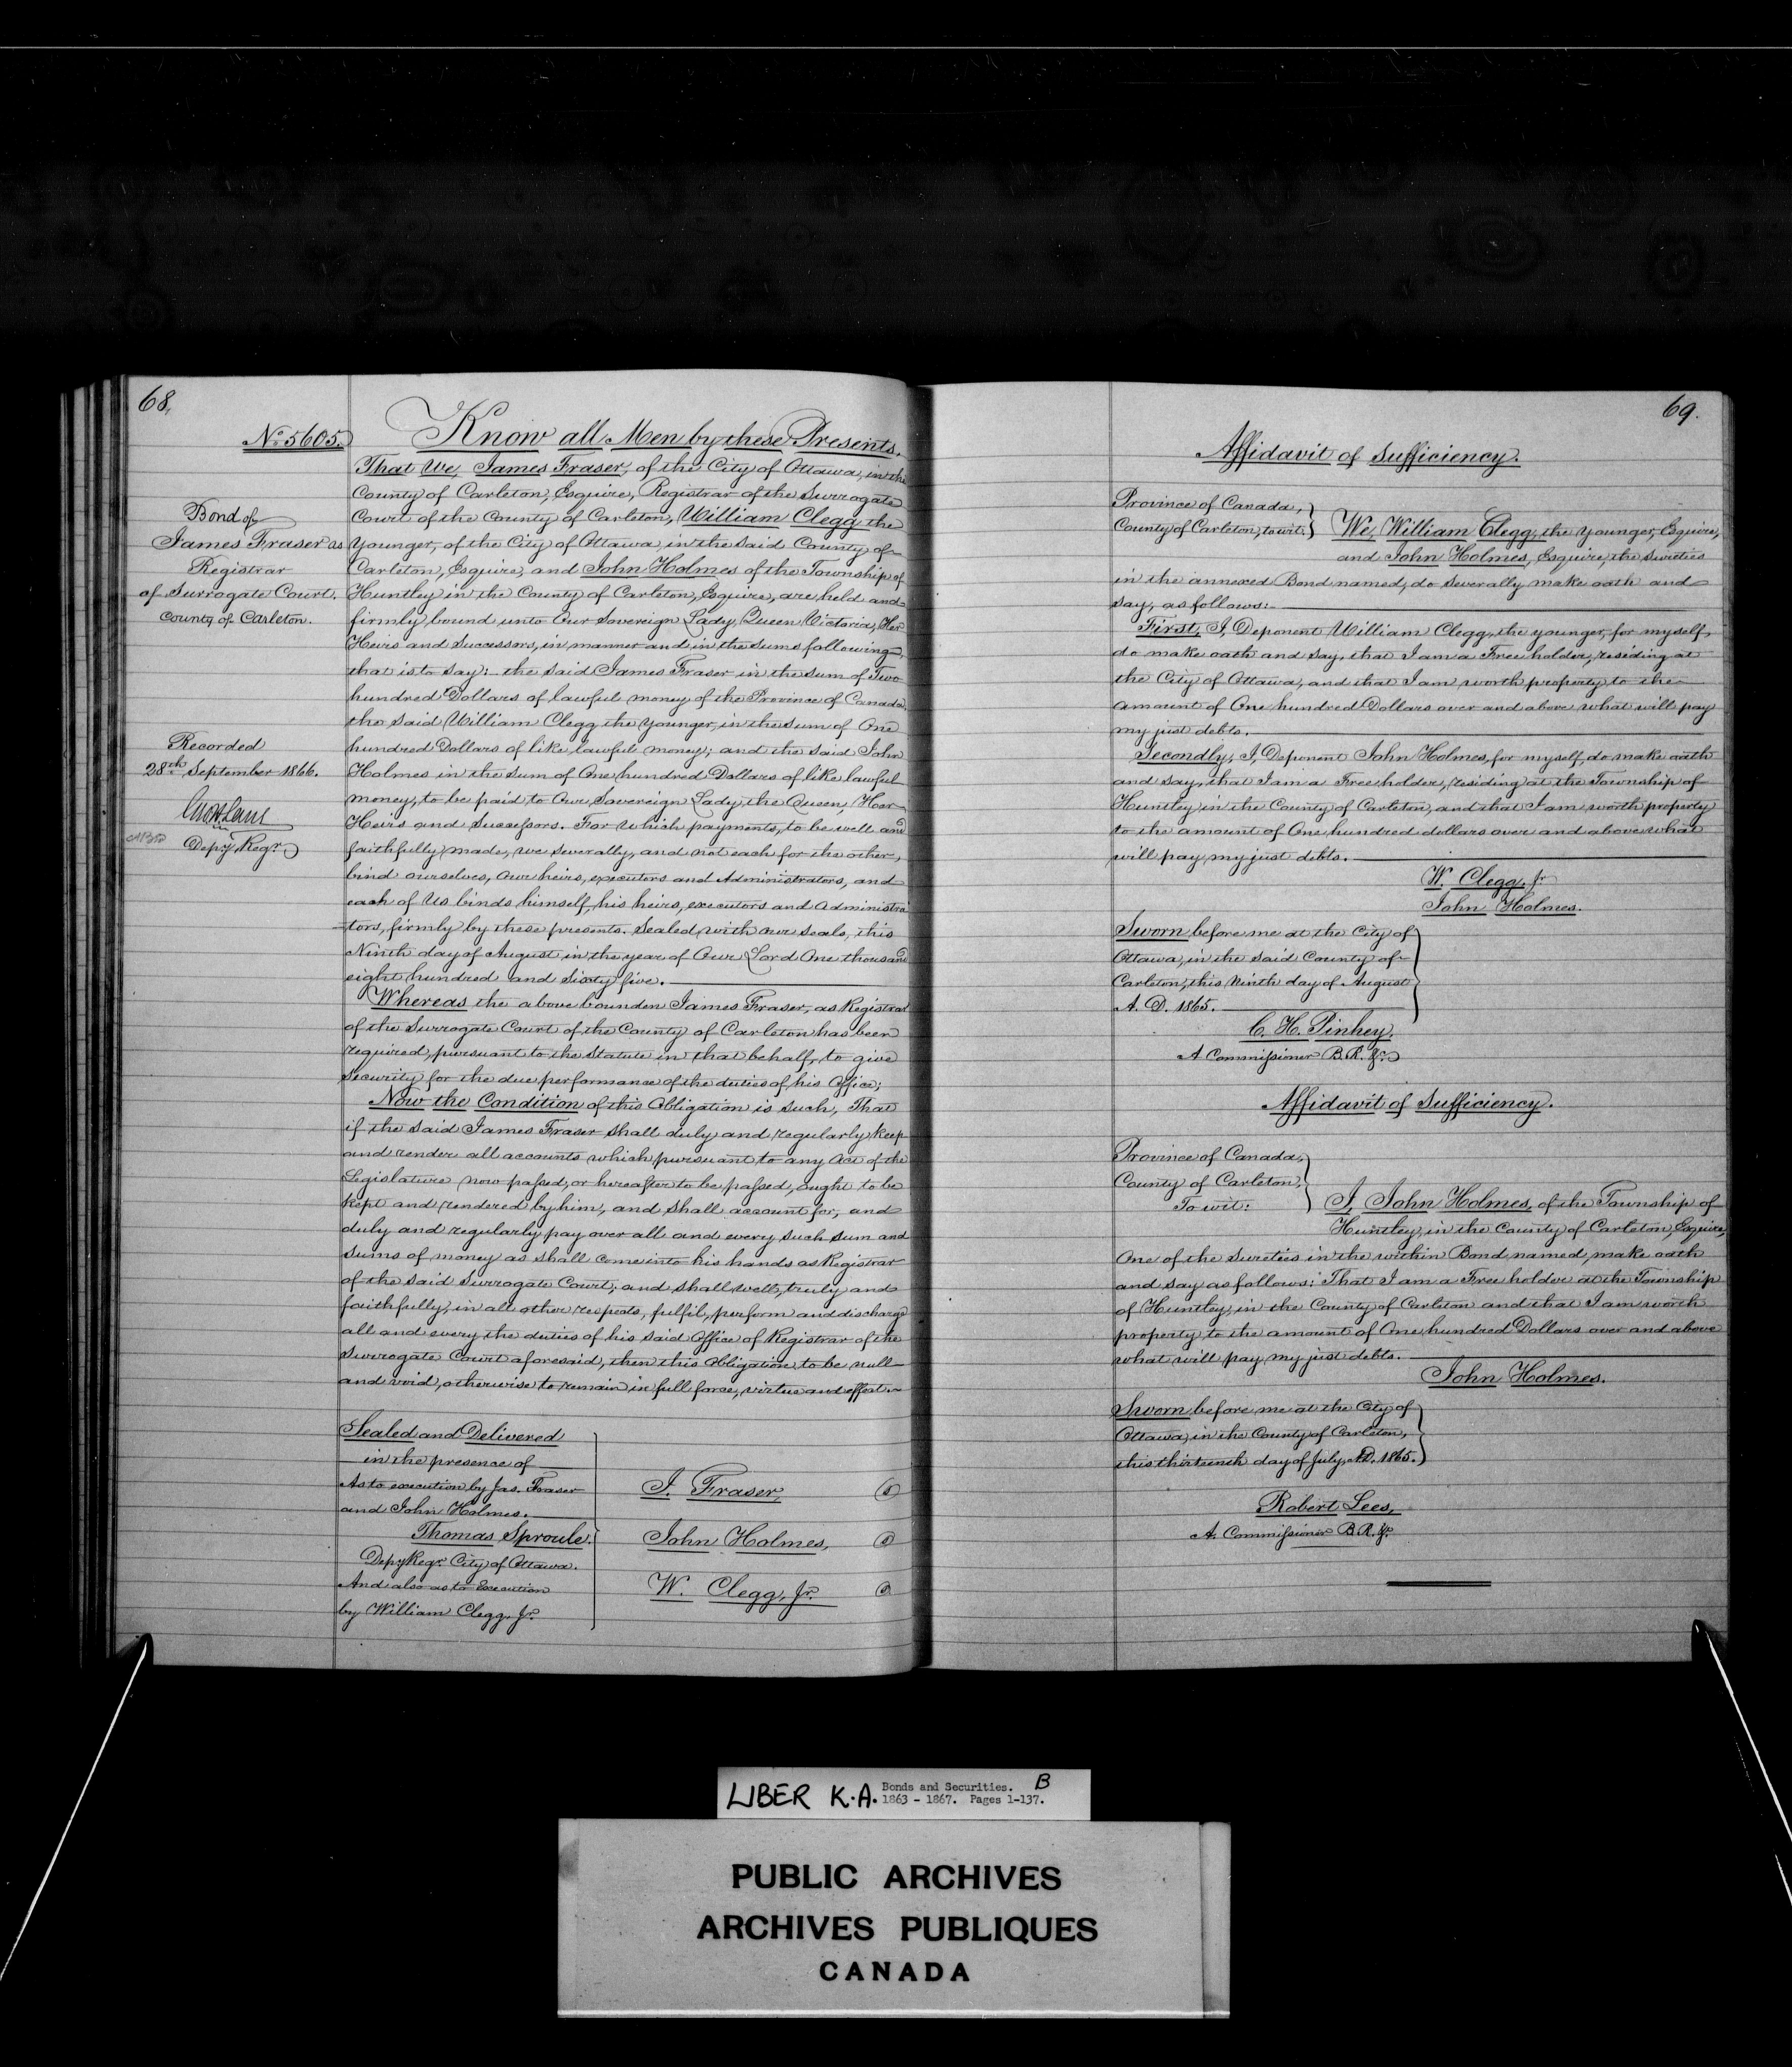 68.
No. 5605.
Bond of
James Fraser as
Registrar
of Surrogate Court.
County of Carleton.
Recorded
28th September 1866.
Depy. Regr.
Know all Men by these Presents,
That We, James Fraser, of the City of Ottawa, in the
County of Carleton, Esquire, Registrar of the Surrogate
Court of the County of Carleton, William Clegg the
younger, of the City of Ottawa, in the said County of
Carleton, Esquire, and John Holmes of the Township of
Huntley in the County of Carleton, Esquire, are held and
firmly bound unto Our Sovereign Lady, Queen Victoria, Her
Heirs and Successors, in manner and in the sums following,
that is to say; the said James Fraser in the sum of Two
hundred Dollars of lawful money of the Province of Canada,
the said William Clegg the younger, in the sum of One
hundred Dollars of like lawful money; and the said John
Holmes in the sum of One hundred Dollars of like lawful
money, to be paid to Our Sovereign Lady, the Queen, Her
Heirs and Successors. For which payments, to be well and
faithfully made, we severally, and not each for the other,
bind ourselves, our heirs, executors and Administrators, and
each of Us binds himself, his heirs, executors and administra
-tors, firmly by these presents. Sealed with our seals, this
Ninth day of August in the year of Our Lord One thousand
eight hundred and Sixty five.
Whereas the above bounden James Fraser, as Registrar
of the Surrogate Court of the County of Carleton has been
required, pursuant to the Statute in that behalf, to give
security for the due performance of the duties of his Office;
Now the Condition of this Obligation is such, That
if the said James Fraser shall duly and regularly keep
and render all accounts which pursuant to any Act of the
Legislature now passed, or hereafter to be passed, ought to be
kept and rendered by him, and shall account for, and
duly and regularly pay over all and every such sum and
sums of money as shall come into his hands as Registrar
of the said Surrogate Court; and shall well, truly and
faithfully, in all other respects, fulfil, perform and discharge
all and every the duties of his said Office of Registrar of the
Surrogate Court aforesaid, then this Obligation to be null
and void, otherwise to remain in full force, virtue and effect.
Sealed and Delivered
in the presence of
As to execution by Jas. Fraser
and John Holmes.
Thomas Sproule.
Depy. Regr. City of Ottawa.
And also as to Execution
by William Clegg, Jr.
J. Fraser,
John Holmes,
W. Clegg, Jr.
69.
Affidavit of Sufficiency.
Province of Canada,
County of Carleton, to wit:
We, William Clegg, the younger, Esquire,
and John Holmes, Esquire, the Sureties
in the annexed Bond named, do severally make oath and
say, as follows:
First, I, Deponent William Clegg, the younger, for myself,
do make oath and say, that I am a Free holder, residing at
the City of Ottawa, and that I am worth property to the
amount of One hundred Dollars over and above what will pay
my just debts.
Secondly, I, Deponent John Holmes, for myself do make oath
and say, that I am a Free holder, residing at the Township of
Huntley in the County of Carleton, and that I am worth property
to the amount of One hundred dollars over and above what
will pay my just debts.
W. Clegg, Jr
John Holmes.
Sworn before me at the City of
Ottawa, in the said County of
Carleton, this Ninth day of August
A. D. 1865.
C. H. Pinhey.
A Commissioner B. R. &c.
Affidavit of Sufficiency.
Province of Canada,
County of Carleton,
To wit:
I, John Holmes, of the Township of
Huntley, in the County of Carleton, Esquire,
One of the Sureties in the within Bond named, make oath
and say as follows: That I am a Free holder at the Township
of Huntley, in the County of Carleton and that I am worth
property to the amount of One hundred Dollars over and above
what will pay my just debts.
John Holmes.
Sworn before me at the City of
Ottawa, in the County of Carleton,
this thirteenth day of July, A.D. 1865.
Robert Lees,
A. Commissioner B. R. &c.
LIBER K.A. Bonds and Securities. B
1863 - 1867. Pages 1-137.
PUBLIC ARCHIVES
ARCHIVES PUBLIQUES
CANADA